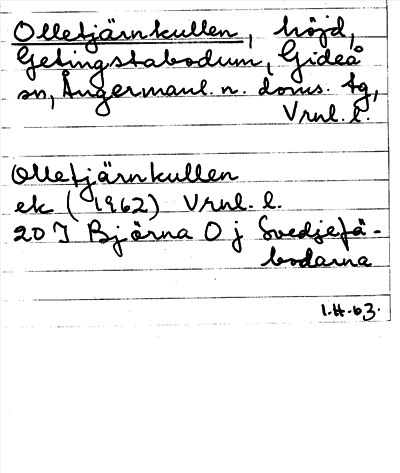 Olletjärnkullen, höjd,
Getingstabodum, Gideå
sn, Ångermanl. n. doms. tg,
Vrnl. l.
Olletjärnkullen
ek (1962) Vrnl. l.
20 I Björna O j Svedjefä-
bodarna
1.H.63.